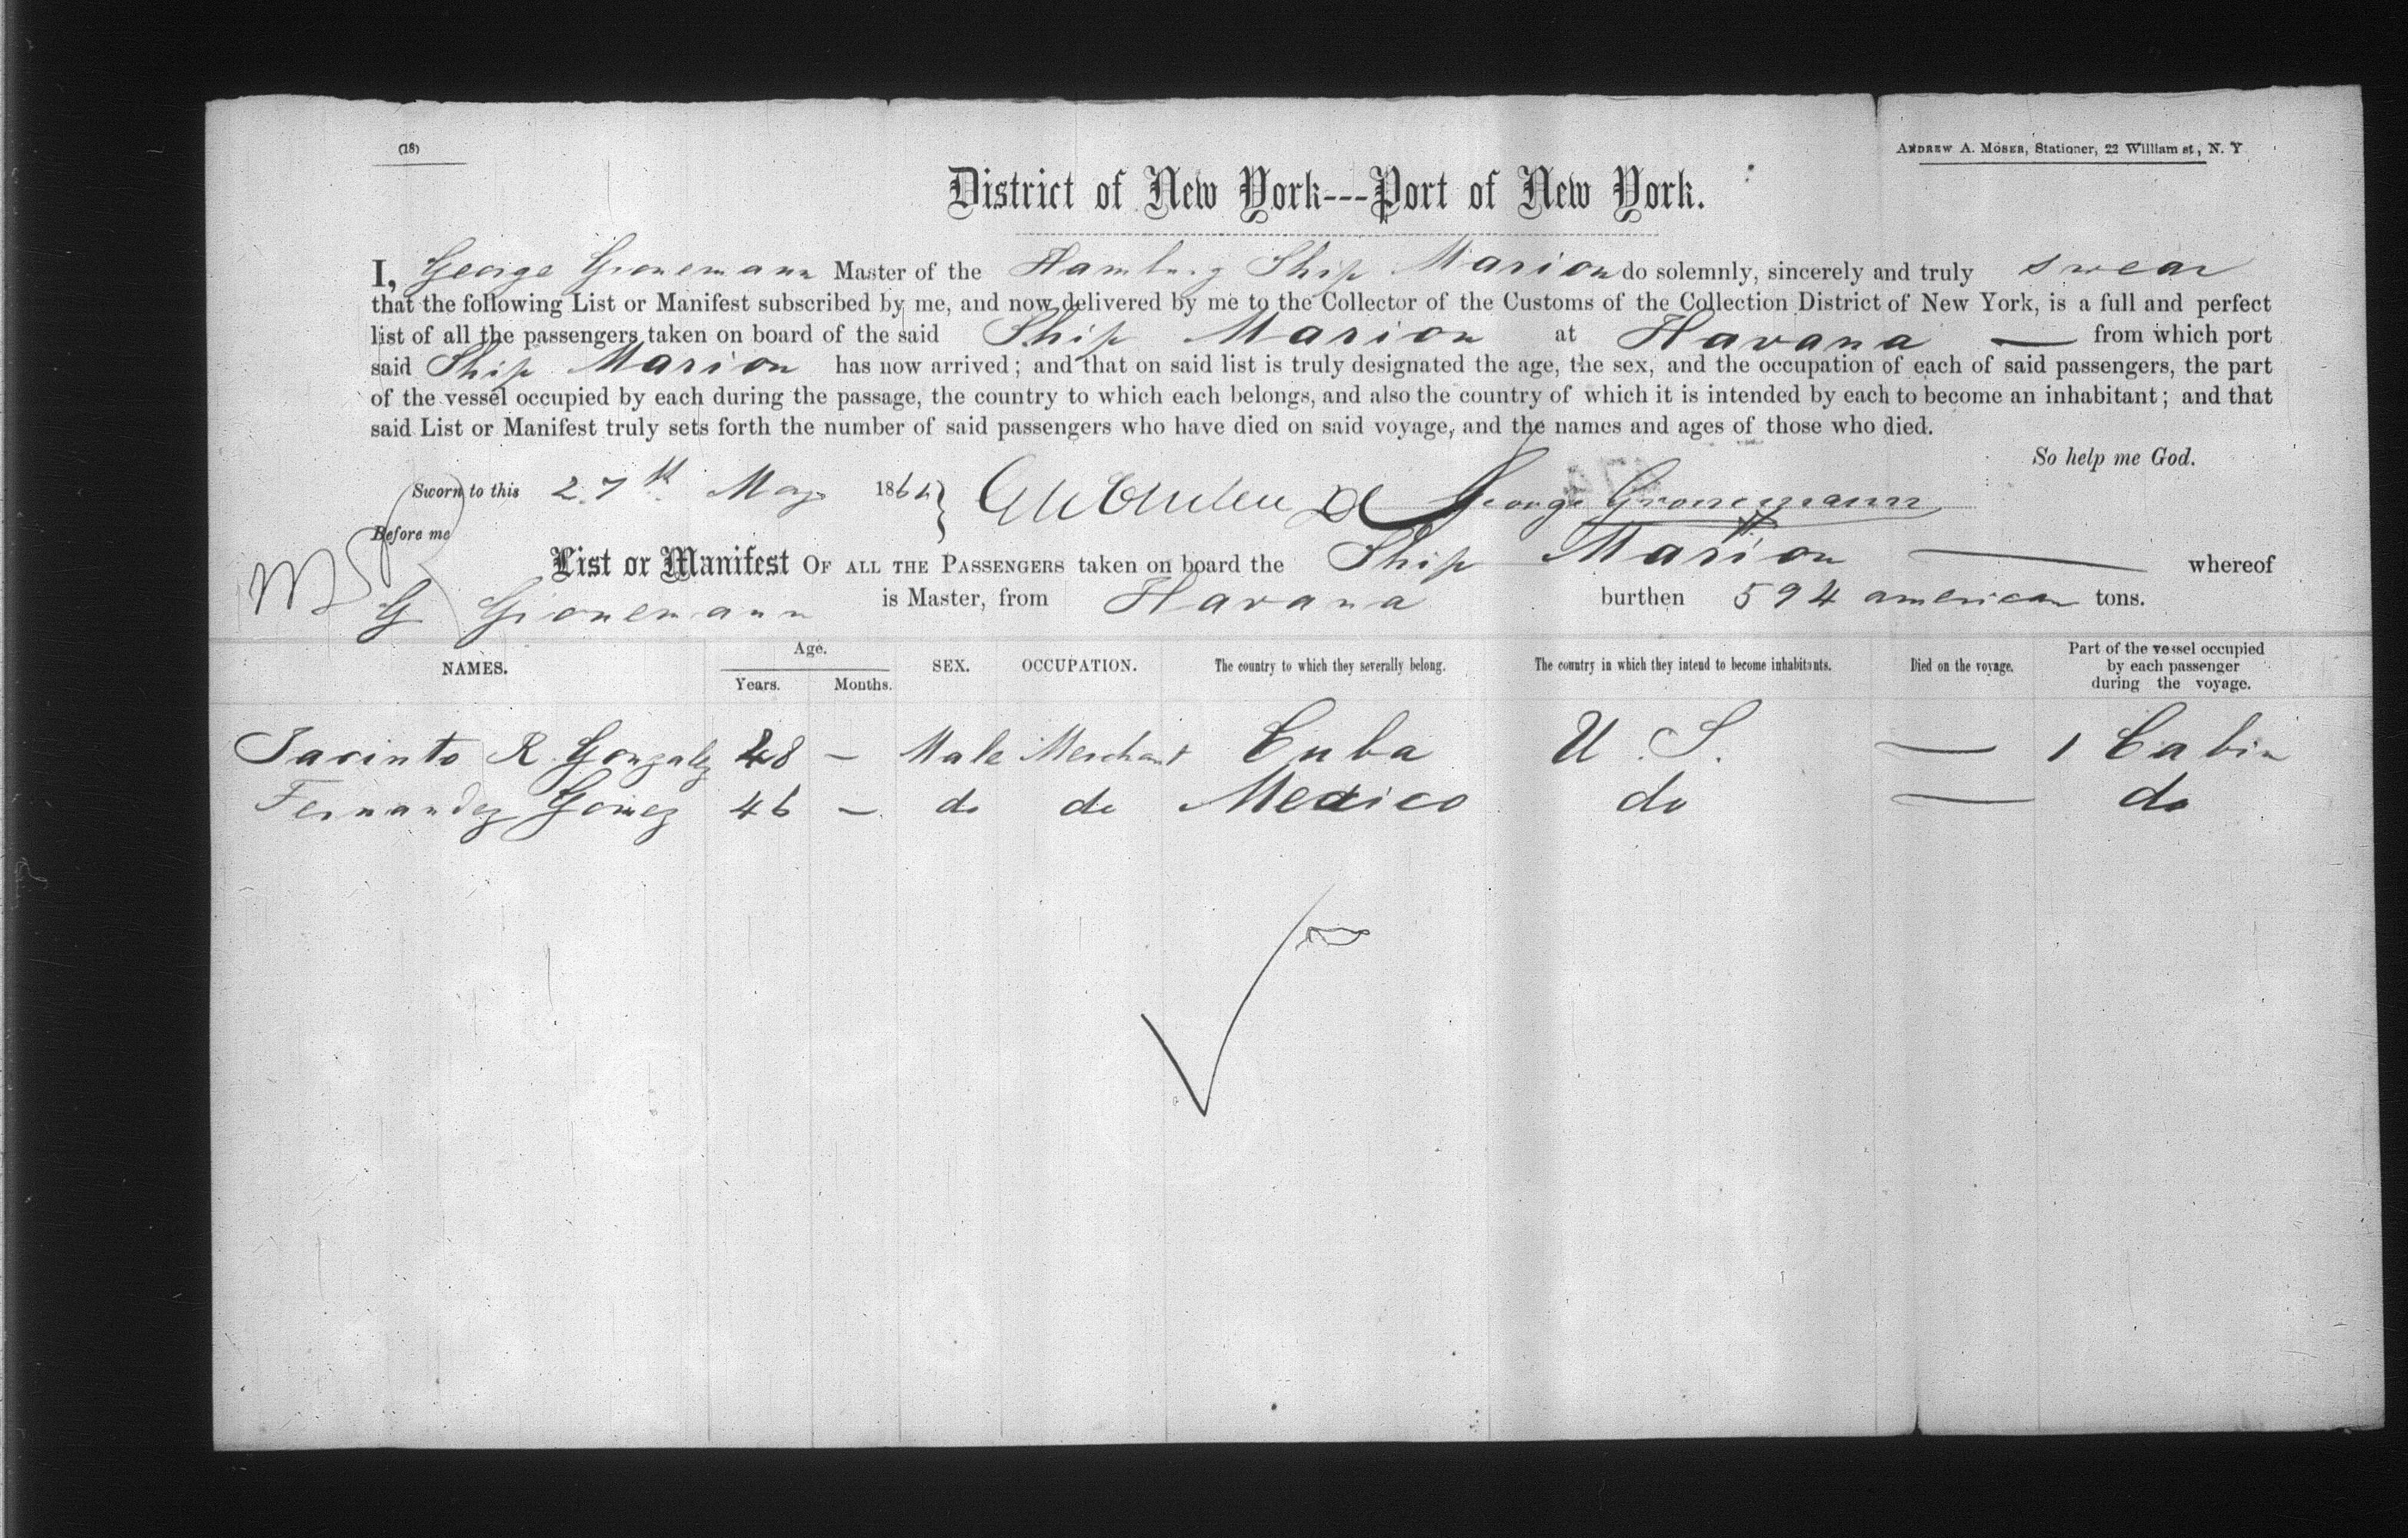 (18)
ANDREW A. MOSER, Stationer, 22 William st, N. Y
District of New York---Port of New York.
I, George Gronemann Master of the Hamburg Ship Marion do solemnly, sincerely and truly swear
that the following List or Manifest subscribed by me, and now delivered by me to the Collector of the Customs of the Collection District of New York, is a full and perfect
list of all the passengers taken on board of the said Ship Marion at Havana — from which port
said Ship Marion has now arrived; and that on said list is truly designated the age, the sex, and the occupation of each of said passengers, the part
of the vessel occupied by each during the passage, the country to which each belongs, and also the country of which it is intended by each to become an inhabitant; and that
said List or Manifest truly sets forth the number of said passengers who have died on said voyage, and the names and ages of those who died.
So help me God.
Sworn to this 27th May 1864 George Gronemann
Before me
List or Manifest OF ALL THE PASSENGERS taken on board the Ship Marion — whereof
G Gronemann is Master, from Havana burthen 594 american tons.
NAMES. Age. Years. Months. SEX. OCCUPATION. The country to which they severally belong. The country in which they intend to become inhabitants. Died on the voyage. Part of the vessel occupied by each passenger during the voyage.
Jacinto R. Gonzalez 48 — Male Merchant Cuba U. S. — 1 Cabin
Fernandez Gomez 46 — do do Mexico do — do